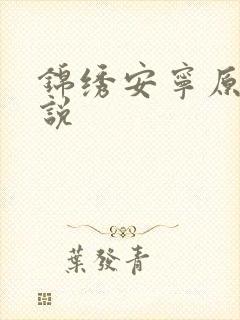 錦绣安寧原
說
葉發青